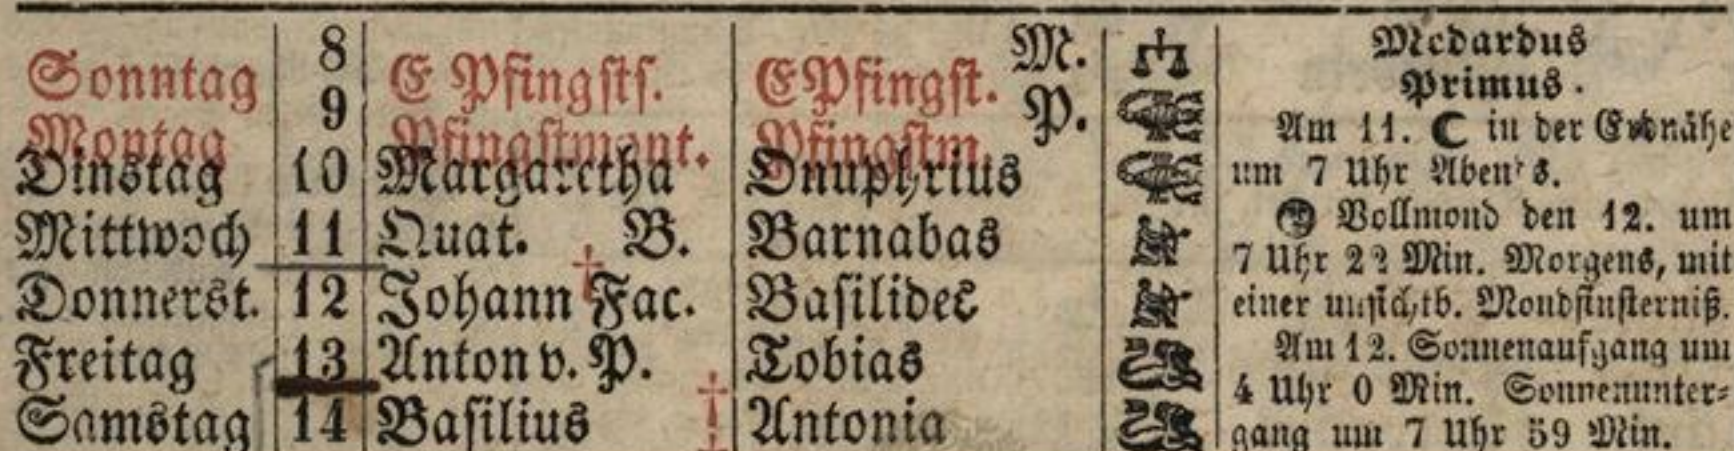 Sonntag 8 E Pfingstf. EPfingst. M. Medardus
Montag 9 Pfingstmont. Pfingstm. P. Primus.
Dinstag 10 Margaretha Onuphrius
Mittwoch 11 Quat. B. Barnabas
Donnerst. 12 Johann Fac. Basilides
Freitag 13 Anton v. P. Tobias
Samstag 14 Basilius Antonia
Am 11. ☾ in der Erdnähe
um 7 Uhr Abends.
Vollmond den 12. um
7 Uhr 22 Min. Morgens, mit
einer unsichtb. Mondfinsterniß.
Am 12. Sonnenaufgang um
4 Uhr 0 Min. Sonnenunter-
gang um 7 Uhr 59 Min.